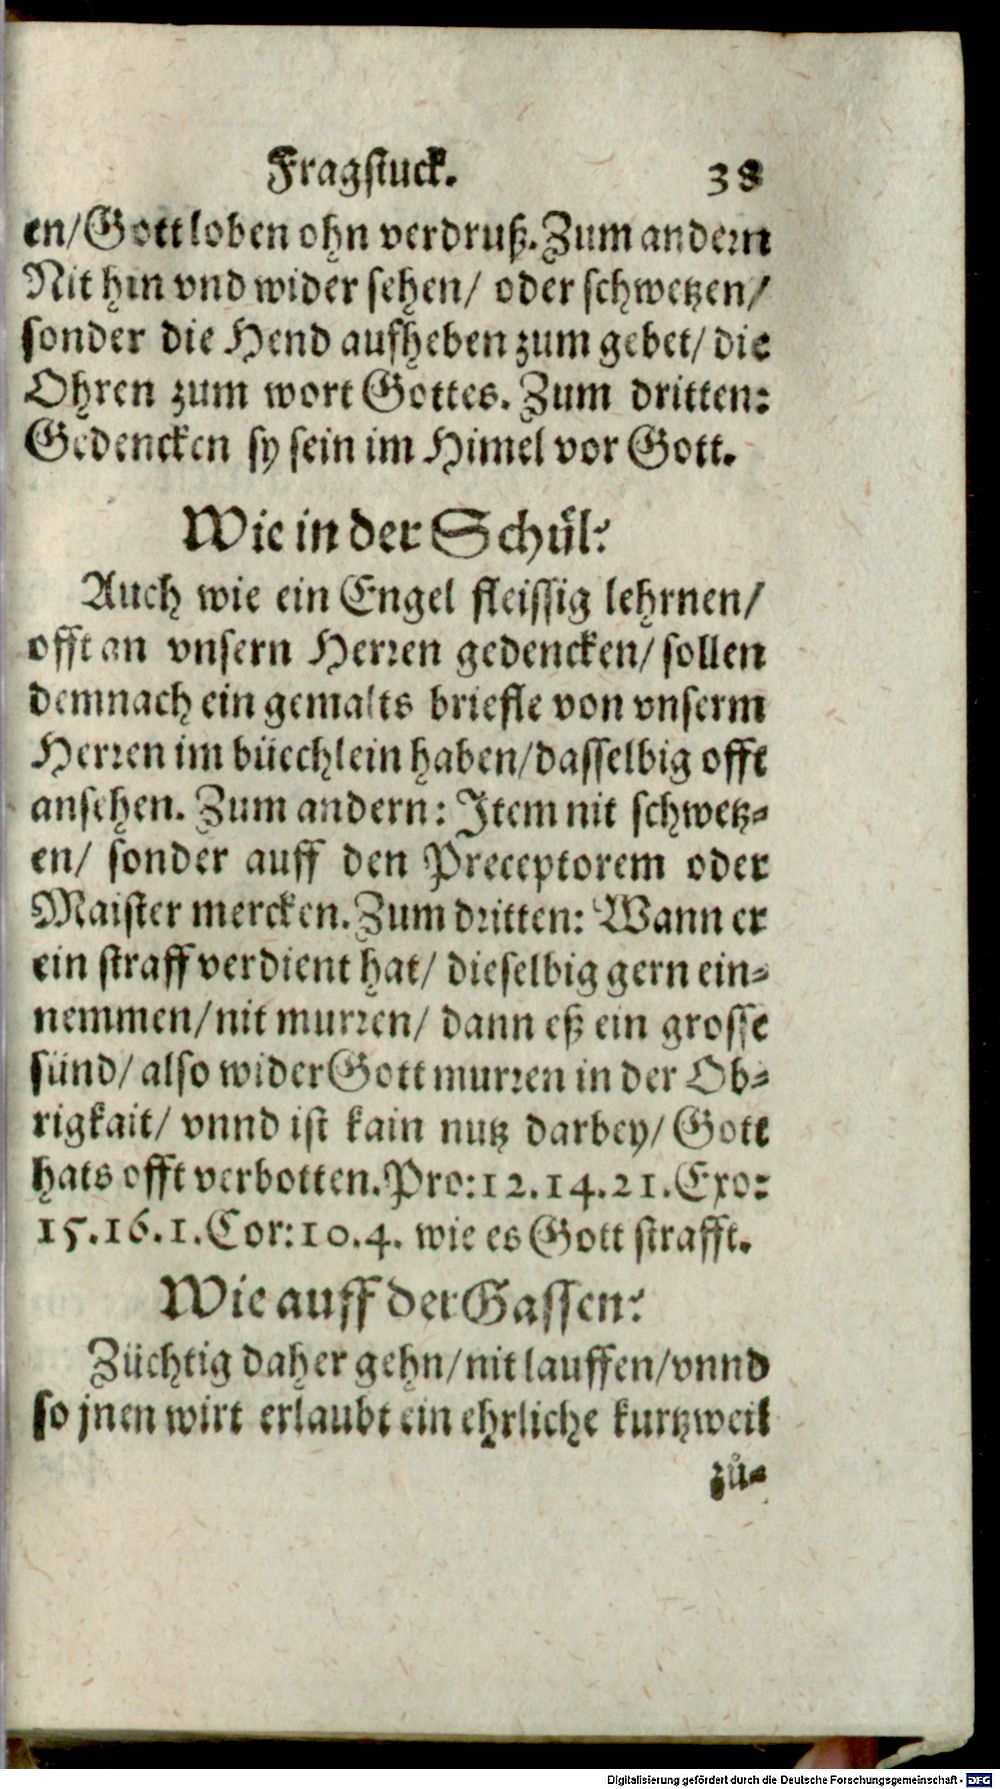 Fragstuck. 38
en/Gott loben ohn verdruß. Zum andern
Nit hin vnd wider sehen/ oder schwetzen/
sonder die Hend aufheben zum gebet/ die
Ohren zum wort Gottes. Zum dritten:
Gedencken sy sein im Himel vor Gott.
Wie in der Schůl?
Auch wie ein Engel fleissig lehrnen/
offt an vnsern Herren gedencken/ sollen
demnach ein gemalts briefle von vnserm
Herren im büechlein haben/dasselbig offt
ansehen. Zum andern: Item nit schwetz-
en/ sonder auff den Preceptorem oder
Maister mercken. Zum dritten: Wann er
ein straff verdient hat/ dieselbig gern ein-
nemmen/nit murren/ dann eß ein grosse
sünd/ also wider Gott murren in der Ob-
rigkait/ vnnd ist kain nutz darbey/ Gott
hats offt verbotten. Pro: 12. 14. 21. Exo:
15. 16. 1. Cor: 10. 4. wie es Gott strafft.
Wie auff der Gassen?
Züchtig daher gehn/nit lauffen/vnnd
so jnen wirt erlaubt ein ehrliche kurtzweil
zů-
Digitalisierung gefördert durch die Deutsche Forschungsgemeinschaft - DFG